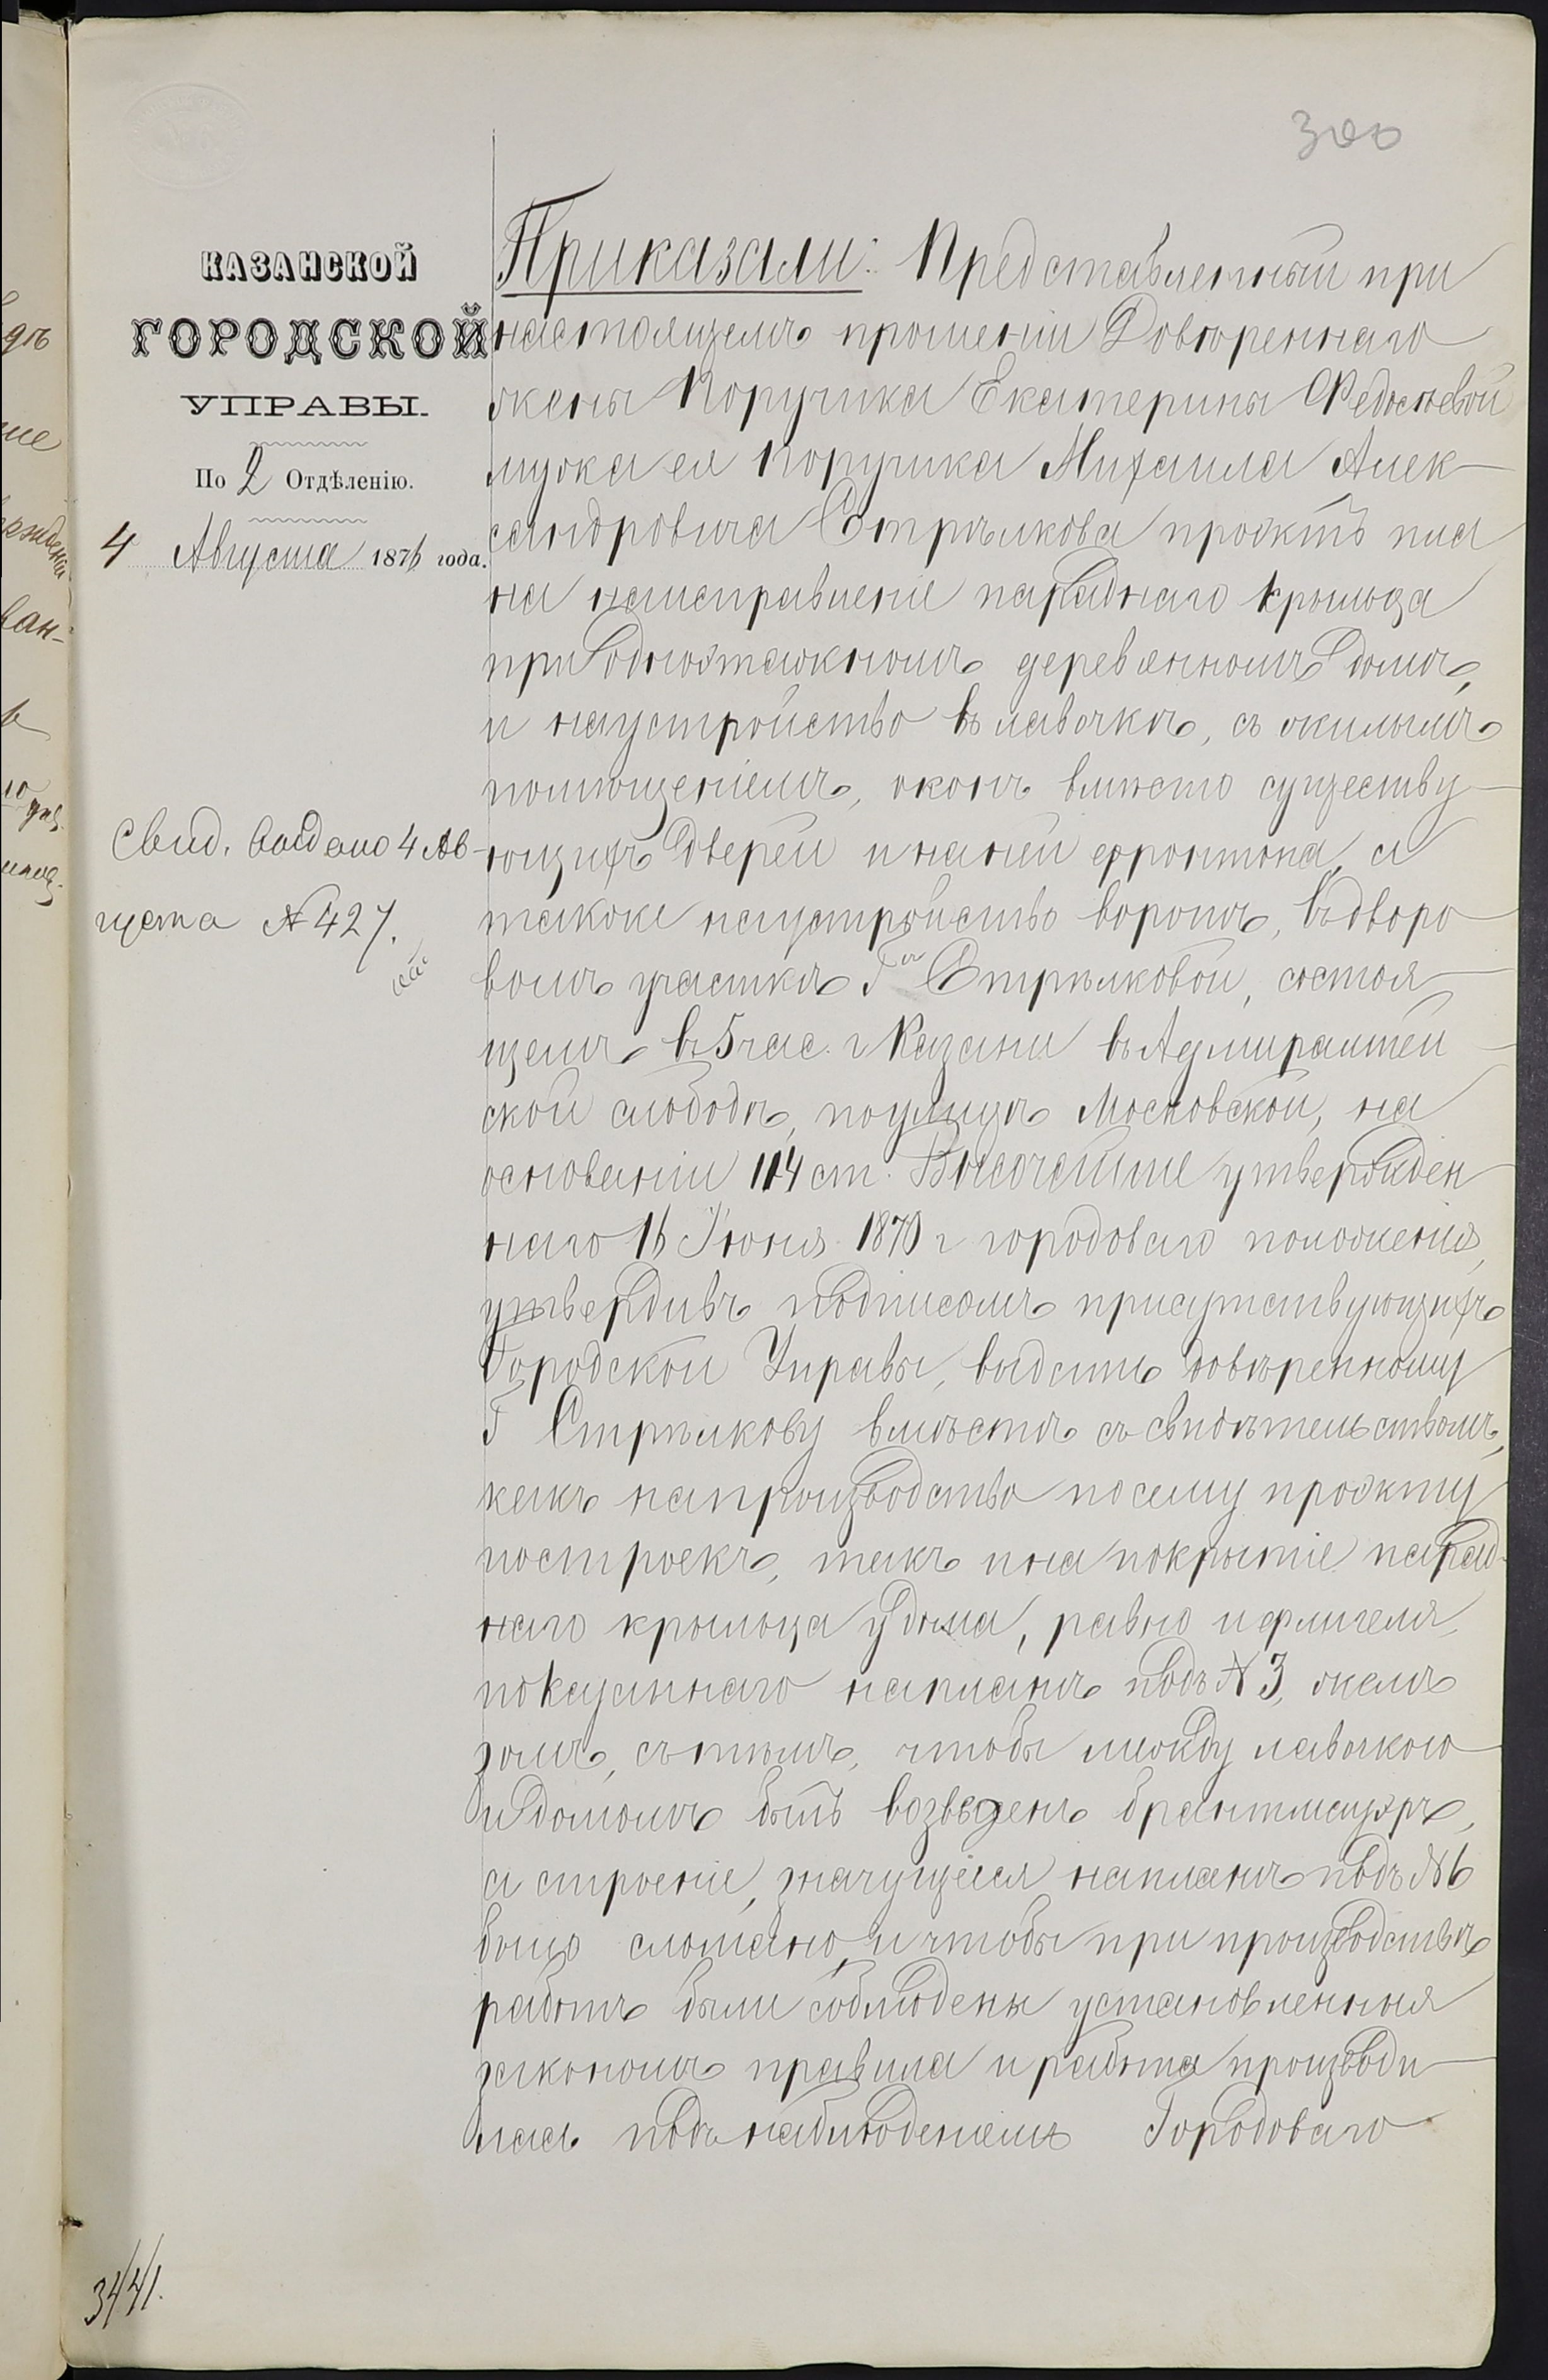 300
КАЗАНСКОЙ
ГОРОДСКОЙ
УПРАВЫ.
По 2 Отдѣленію.
4 Августа 1876 года.
Свид. выдано 4 Ав-
густа № 427.
Приказали: Представленный при
настоящемъ прошеніи Довѣреннаго
жены Поручика Екатерины Федосѣевой
мужа ея Поручика Михаила Алек-
сандровича Стрѣлкова проэктъ пла
на на исправленіе параднаго крыльца
при одноэтажномъ деревянномъ домѣ,
и на устройство въ лавочкѣ, съ жилымъ
помѣщеніемъ, оконъ вмѣсто существу-
ющихъ дверей и на ней фронтона, а
также на устройство воротъ, въ дворо-
вомъ участкѣ Гжи Стрѣлковой, состоя-
щемъ въ 5 час. г Казани въ Адмиралтей-
ской слободѣ, по улицѣ Московской, на
основаніи 114 ст. Высочайше утвержден
наго 16 Іюня 1870 г городоваго положенія,
утвердивъ подписомъ присутствующихъ
Городской Управы, выдать довѣренному
Г Стрѣлкову вмѣстѣ съ свидѣтельствомъ,
какъ на производство по сему проэкту
построекъ, такъ и на покрытіе парад-
наго крыльца у дома, равно и флигеля,
показаннаго на планѣ подъ № 3, желѣ
зомъ, съ тѣмъ, чтобы между лавочкою
и домомъ былъ возведенъ брантмауэръ,
а строеніе, значущееся на планѣ подъ № 6
было сломано, и чтобы при производствѣ
работъ были соблюдены установленныя
закономъ правила и работа производи-
лась подъ наблюденіемъ Городоваго
3441.